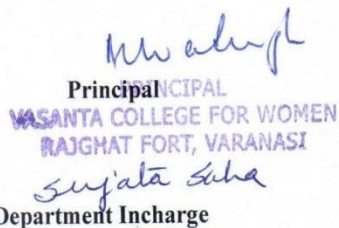 Principal
PRINCIPAL
VASANTA COLLEGE FOR WOMEN
RAJGHAT FORT, VARANASI
Sujata Saha
Department Incharge